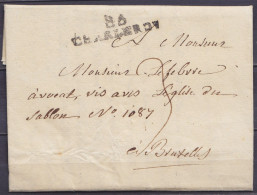 86
CHARLEROY
A Monsieur
Monsieur Lefebvre
avocat, vis avis l'Eglise du
Sablon No. 1087
à Bruxelles